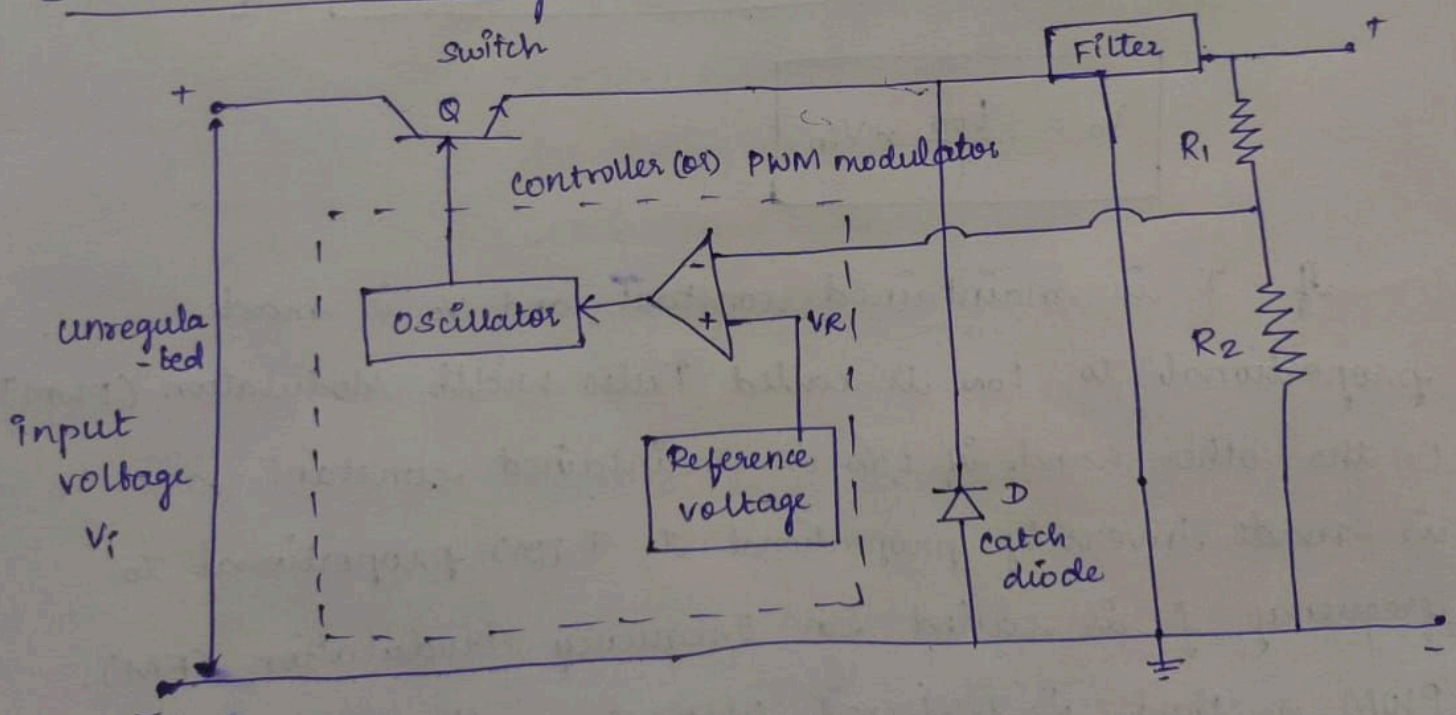 switch
Filter
+
+
Q
R1
controller (or) PWM modulator
-
oscillator
+
VR
unregula
-ted
R2
input
voltage
Vi
Reference
voltage
D
catch
diode
-